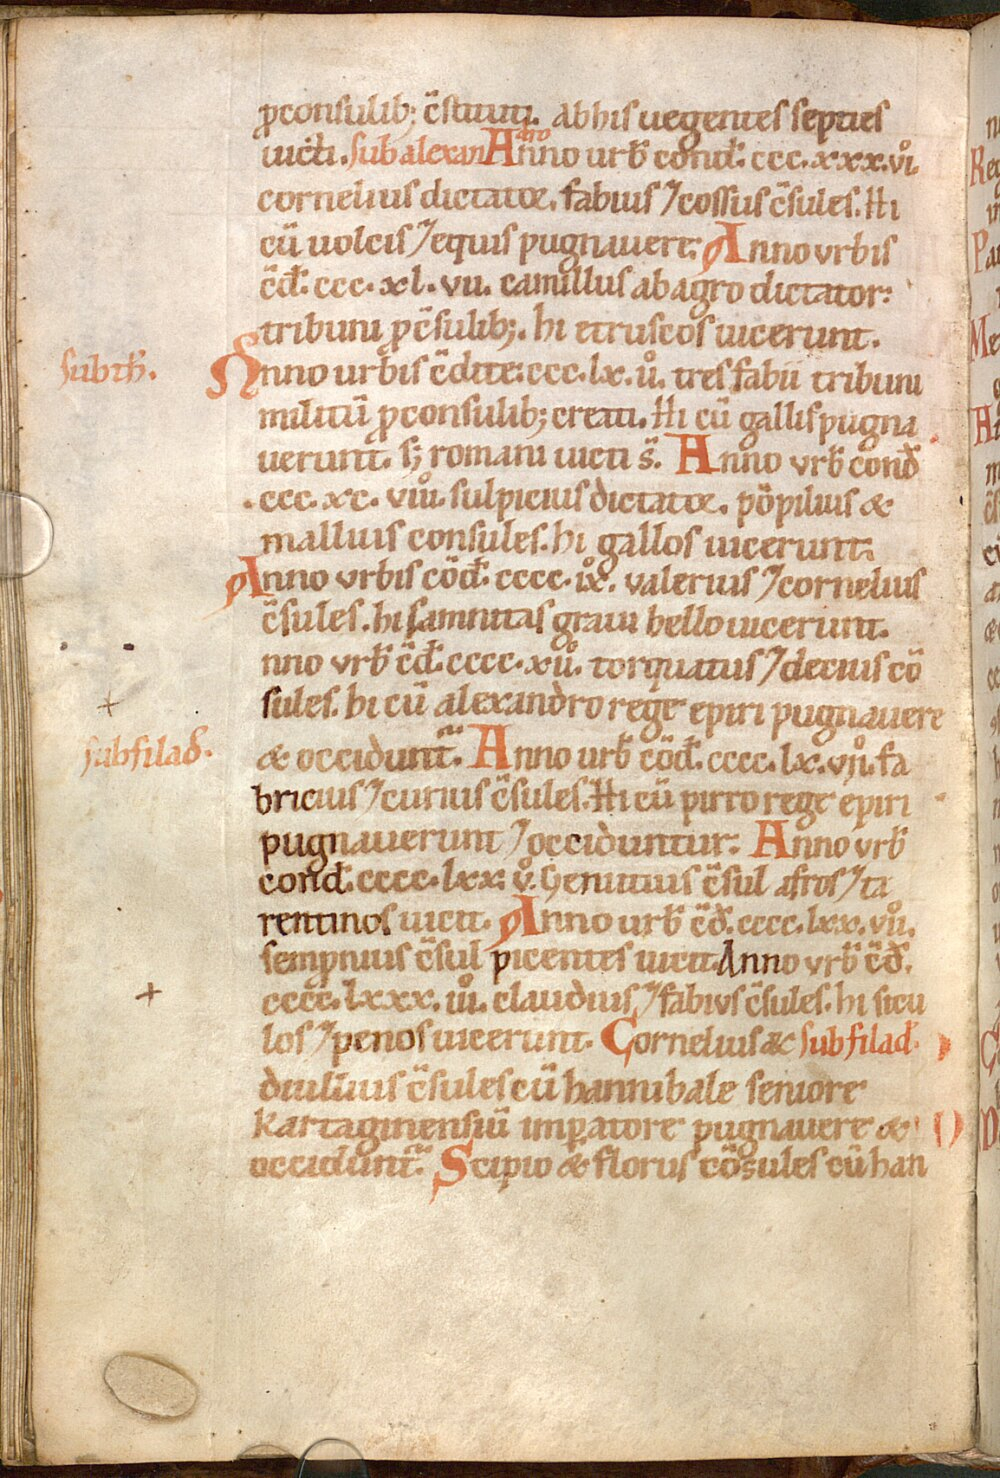 ꝓconsulib; c̄stituti. abhis uegentes septies
uicti. sub alexan dro Anno urƀ cond̄. ccc. xxx. vi̊.
cornelius dictator. fabius ⁊ cossus c̄sules. Hi
cū uolcis ⁊ equis pugnauere: Anno vrbis
c̄d̄. ccc. xl. vii. camillus ab agro dictator:
tribuni ꝓ c̄sulib;. hi etruscos uicerunt.
subth̄. Anno urbis c̄dite: ccc. lx. ů. tres fabii tribuni
militū ꝓconsulib; creati. Hi cū gallis pugna
uerunt. s; romani uicti s̄. Anno vrƀ cond̄
.ccc. xc. viiů. sulpicius dictator. pōpilius &
mallius consules. hi gallos uicerunt.
Anno vrbis cōd̄. cccc. ix̊. valerius ⁊ cornelius
c̄sules. hi samnitas graui bello uicerunt.
nno vrƀ c̄d̄. cccc. xů. torquatus ⁊ decius cō
sules. hi cū alexandro rege epiri pugnauere
subfilad̄. & occidunt̄. Anno urƀ cōd̄. cccc. lx. vii̊. fa
bricius ⁊ curius c̄sules. Hi cū pirro rege epiri
pugnauerunt ⁊ occiduntur: Anno vrƀ
cond̄. cccc. lxx. v̊. Genutius c̄sul afros ⁊ ta
rentinos uicit. Anno urƀ c̄d̄. cccc. lxx. vii̊.
sempnius c̄sul picentes uicit. Anno vrƀ c̄d̄.
cccc. lxxx. iii̊. claudius ⁊ fabius c̄sules. hi sicu
los ⁊ penos uicerunt. Cornelius & sub filad̄.
duillius c̄sules cū hannibale seniore
kartaginensiū imꝑatore pugnauere &
occidunt̄. Scipio & florus cōsules cū han